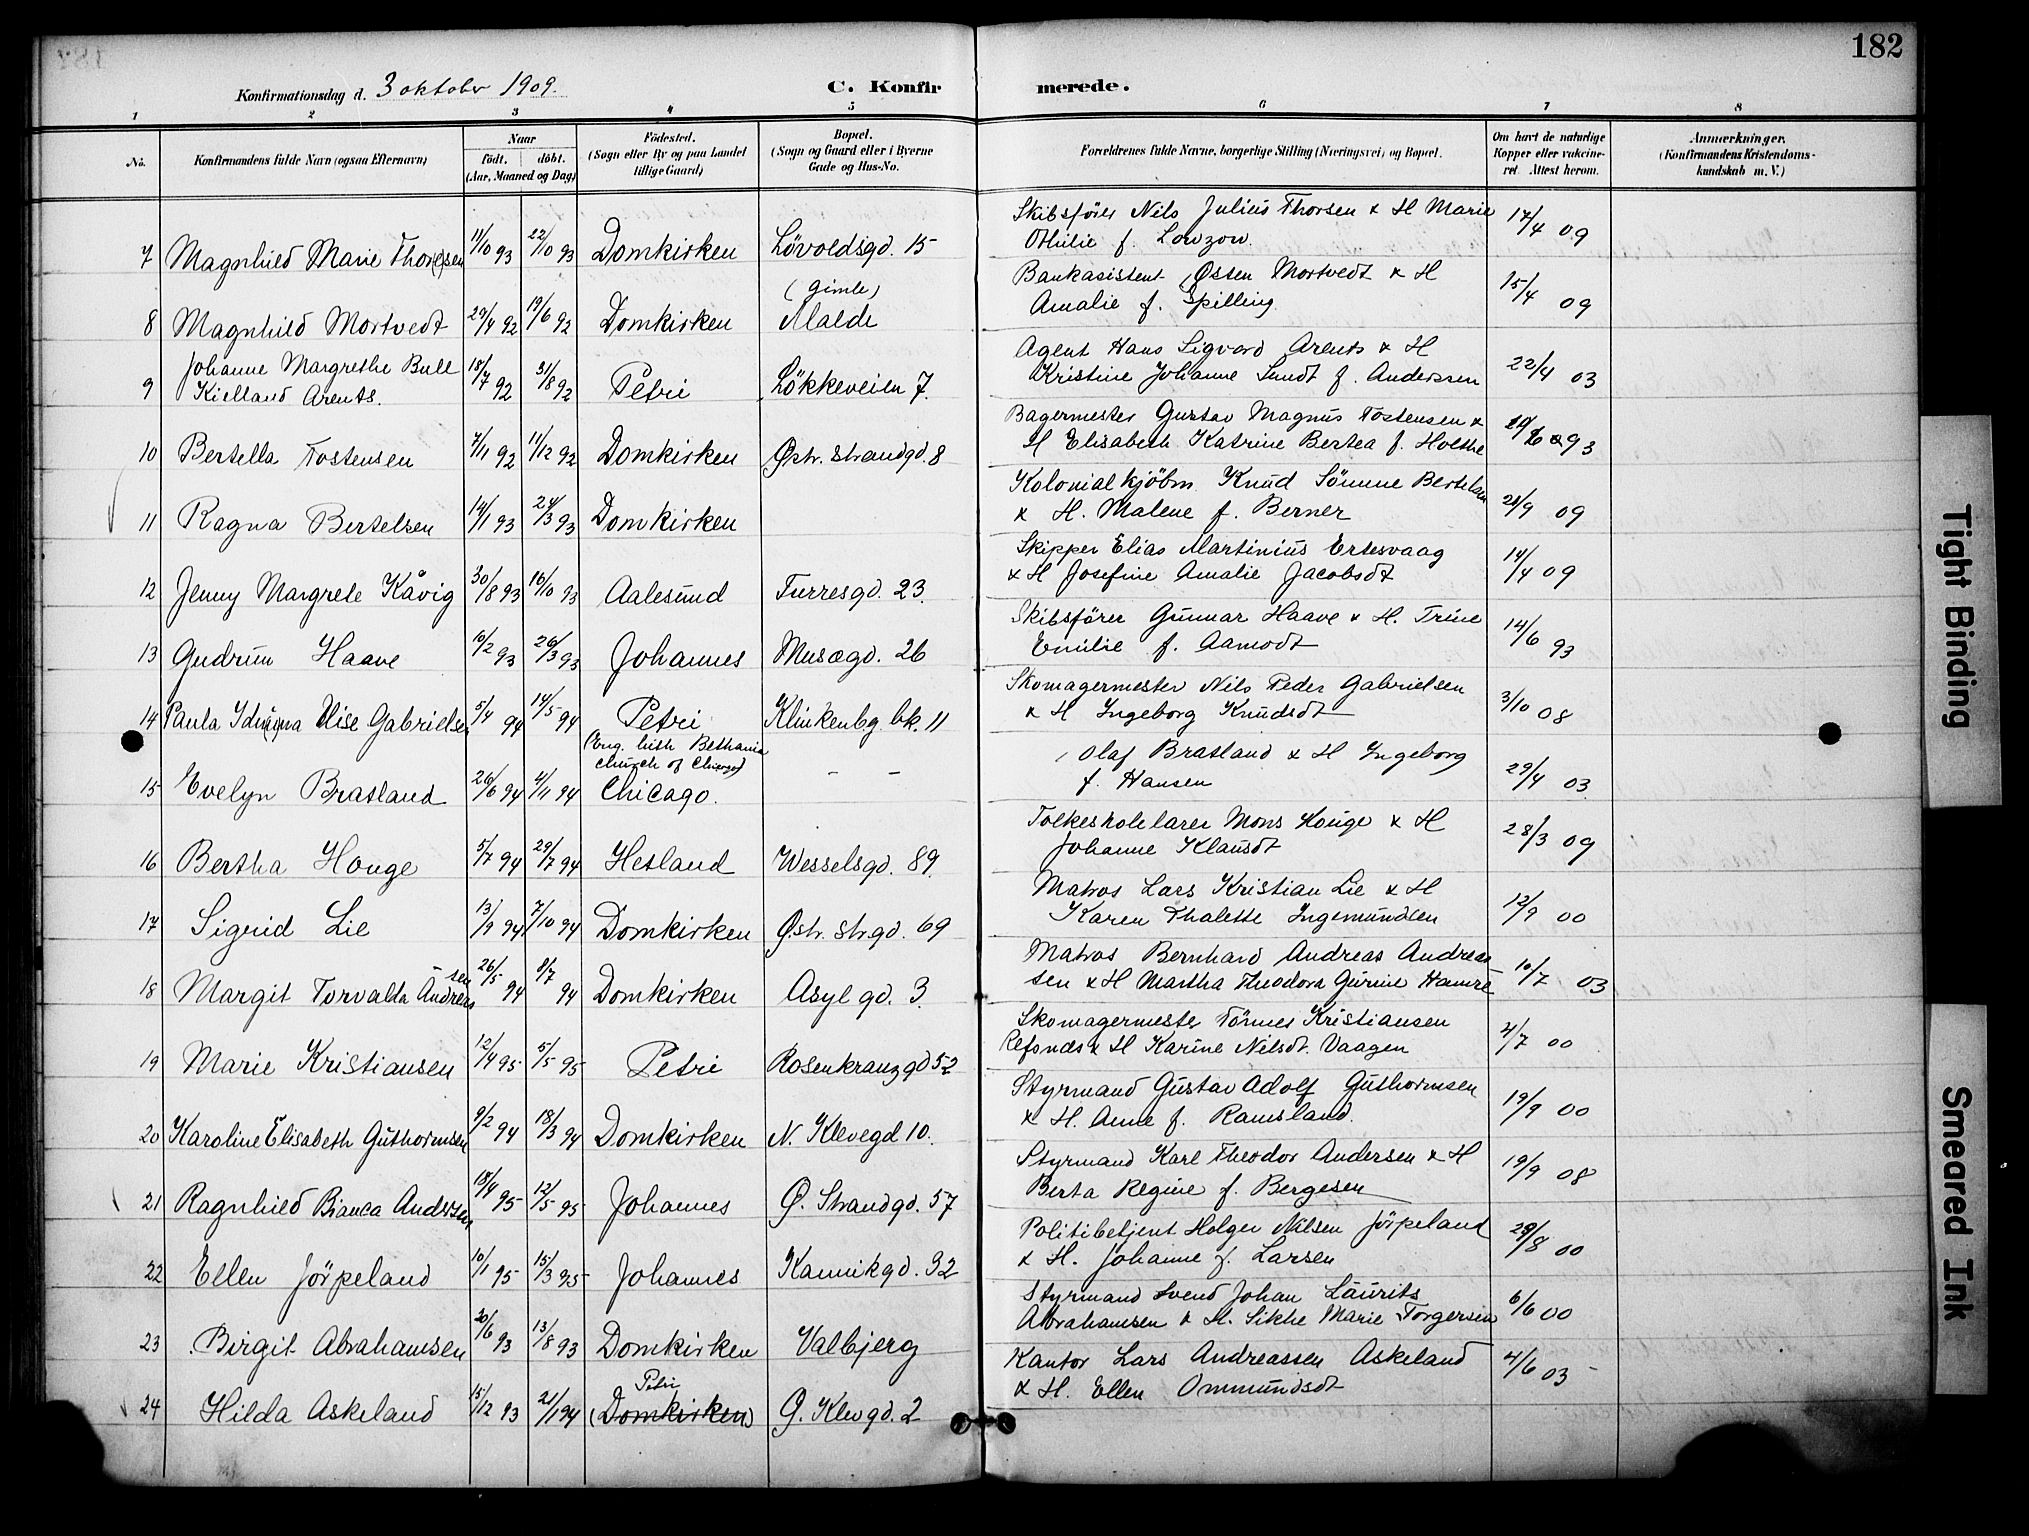 182
Konfirmationsdag d. 3 oktober 1909.
C. Konfirmerede.
1 2 3 4 5 6 7 8
No.
Konfirmandens fulde Navn (ogsaa Efternavn)
Naar
født. døbt.
(Aar, Maaned og Dag)
Födested.
(Sogn eller By og paa Landet
tillige Gaard)
Bopæl.
(Sogn og Gaard eller i Byerne
Gade og Hus-No.
Forældrenes fulde Navne, borgerlige Stilling (Næringsvei) og Bopæl.
Om havt de naturlige
Kopper eller vakcine-
ret. Attest herom.
Anmærkninger.
(Konfirmandens Kristendoms-
kundskab m. V.)
7 Magnhild Marie Thor(e)sen 11/10 93 22/10 93 Domkirken Lövoldsgd. 15
Skibsförer Nils Julius Thorsen & H Marie
Othilie f. Lowzow. 17/4 09
8 Magnhild Mortvedt 29/4 92 19/6 92 Domkirken (Gimle)
Malde
Bankasistent Østen Mortvedt & H
Amalie f. Spilling. 15/4 09
9 Johanne Margrethe Bull
Kielland Arents. 18/7 92 31/8 92 Petri Lökkeveien 7.
Agent Hans Sigvard Arents & H
Kristine Johanne Sundt f. Anderssen 22/4 03
10 Bertella Tostensen 7/11 92 11/12 92 Domkirken Østr. Strandgd. 8
Bagermester Gustav Magnus Tostensen &
H Elisabeth Katrine Bertea f. Holthe 93
11 Ragna Bertelsen 14/1 93 24/3 93 Domkirken
Kolonialkjöbm Knud Sömme Bertelsen
& H. Malene f. Berner 21/9 09
12 Jenny Margrete Kåvig 30/8 93 16/10 93 Aalesund Turresgd. 23.
Skipper Elias Martinius Ertesvaag
& H Josefine Amalie Jacobsdt 14/4 09
13 Gudrun Haave 10/2 93 26/3 93 Johannes Musægd. 26
Skibsförer Gunnar Haave & H. Trine
Emilie f. Aamodt 14/6 93
14 Paula Elise Gabrielsen 5/4 94 14/5 94 Petri Klinkenbg. bk. 11
Skomagermester Nils Peder Gabrielsen
& H Ingeborg Knudsdt 3/10 08
15 Evelyn Brasland 26/6 94 4/11 94 (Eng. luth Bethania
church of Chicago)
Chicago. – –
Olaf Brasland & H Ingeborg
f. Hansen 29/4 03
16 Bertha Houge 5/7 94 29/7 94 Hetland Wesselsgd. 89.
Folkeskolelærer Mons Houge & H
Johanne Klausdt 28/3 09
17 Sigrid Lie 13/9 94 7/10 94 Domkirken Østr. Strgd. 69
Matros Lars Kristian Lie & H
Karen Thalette Ingemundsen 12/9 00
18 Margit Torvalda Andreas
sen 26/5 94 8/7 94 Domkirken Asylgd. 3.
Matros Bernhard Andreas Andreas
sen & H Martha Theodora Gurine Hamre 10/7 03
19 Marie Kristiansen 12/4 95 5/5 95 Petri Rosenkranzgd 52
Skomagermester Tönnes Kristiansen
Refsnes & H Karine Nilsdt. Vaagen 4/7 00
20 Karoline Elisabeth Guthormsen 9/2 94 18/3 94 Domkirken N. Klevegd 10.
Styrmand Gustav Adolf Guthormsen
& H. Anne f. Ramsland. 19/9 00
21 Ragnhild Bianca Andersen 18/4 95 12/5 95 Johannes Ø. Strandgd. 57
Styrmand Karl Theodor Andersen & H
Berta Regine f. Bergesen 19/9 08
22 Ellen Jörpeland 10/1 95 15/3 95 Johannes Kannikgd. 32
Politibetjent Holger Nilsen Jörpeland
& H. Johanne f. Larsen 28/8 00
23 Birgit Abrahamsen 20/6 93 13/8 93 Domkirken Valbjerg
Styrmand Svend Johan Laurits
Abrahamsen & H. Sikke Marie Torgersen 6/6 00
24 Hilda Askeland 15/12 93 21/1 94 Petri
(Domkirken) Ø. Klevgd. 2
Kantor Lars Andreassen Askeland
& H. Ellen Ommundsdt 4/6 03
Tight Binding
Smeared Ink